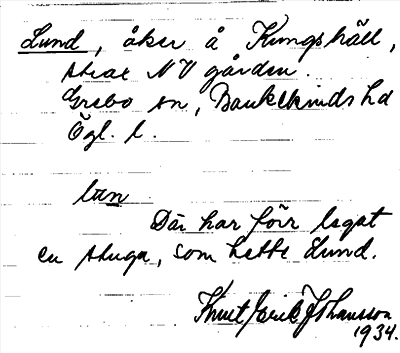 Lund, åker å Kungshäll,
strax NV gården.
Grebo sn, Bankekinds hd
Ögl. l.
lun
Där har förr legat
en stuga, som hette Lund.
Knut Erik Johansson
1934.